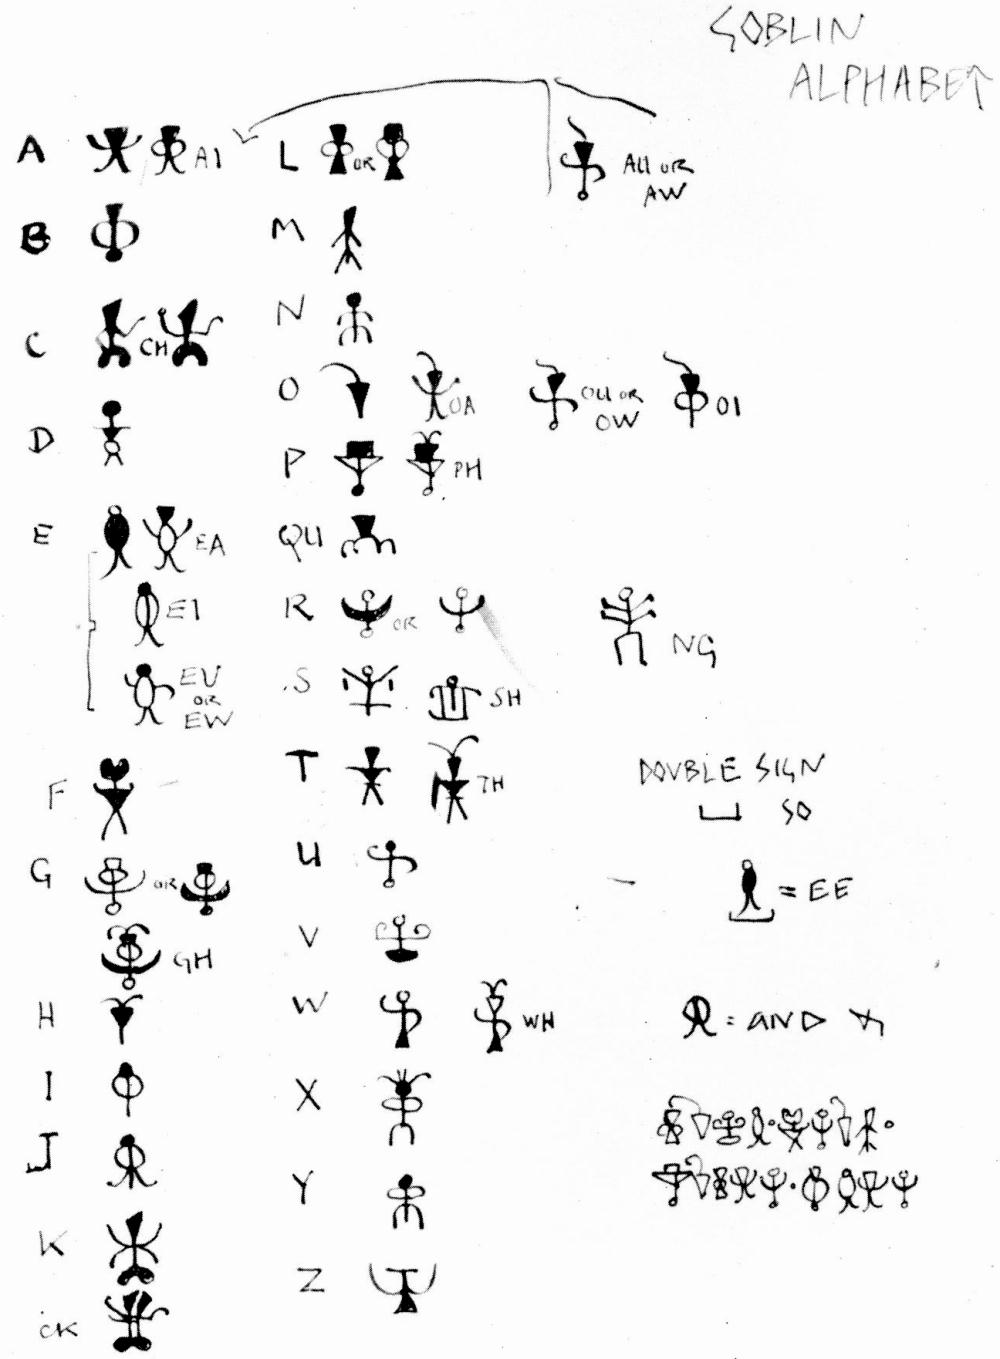 GOBLIN
ALPHABET
A AI
B
C CH
D
E EA
EI
EU
OR
EW
F
G OR
GH
H
I
J
K
CK
L OR
AU OR
AW
M
N
O OA
OU OR
OW
OI
P PH
QU
R OR
NG
S SH
T TH
U
V
W WH
X
Y
Z
DOUBLE SIGN
SO
= EE
= AND